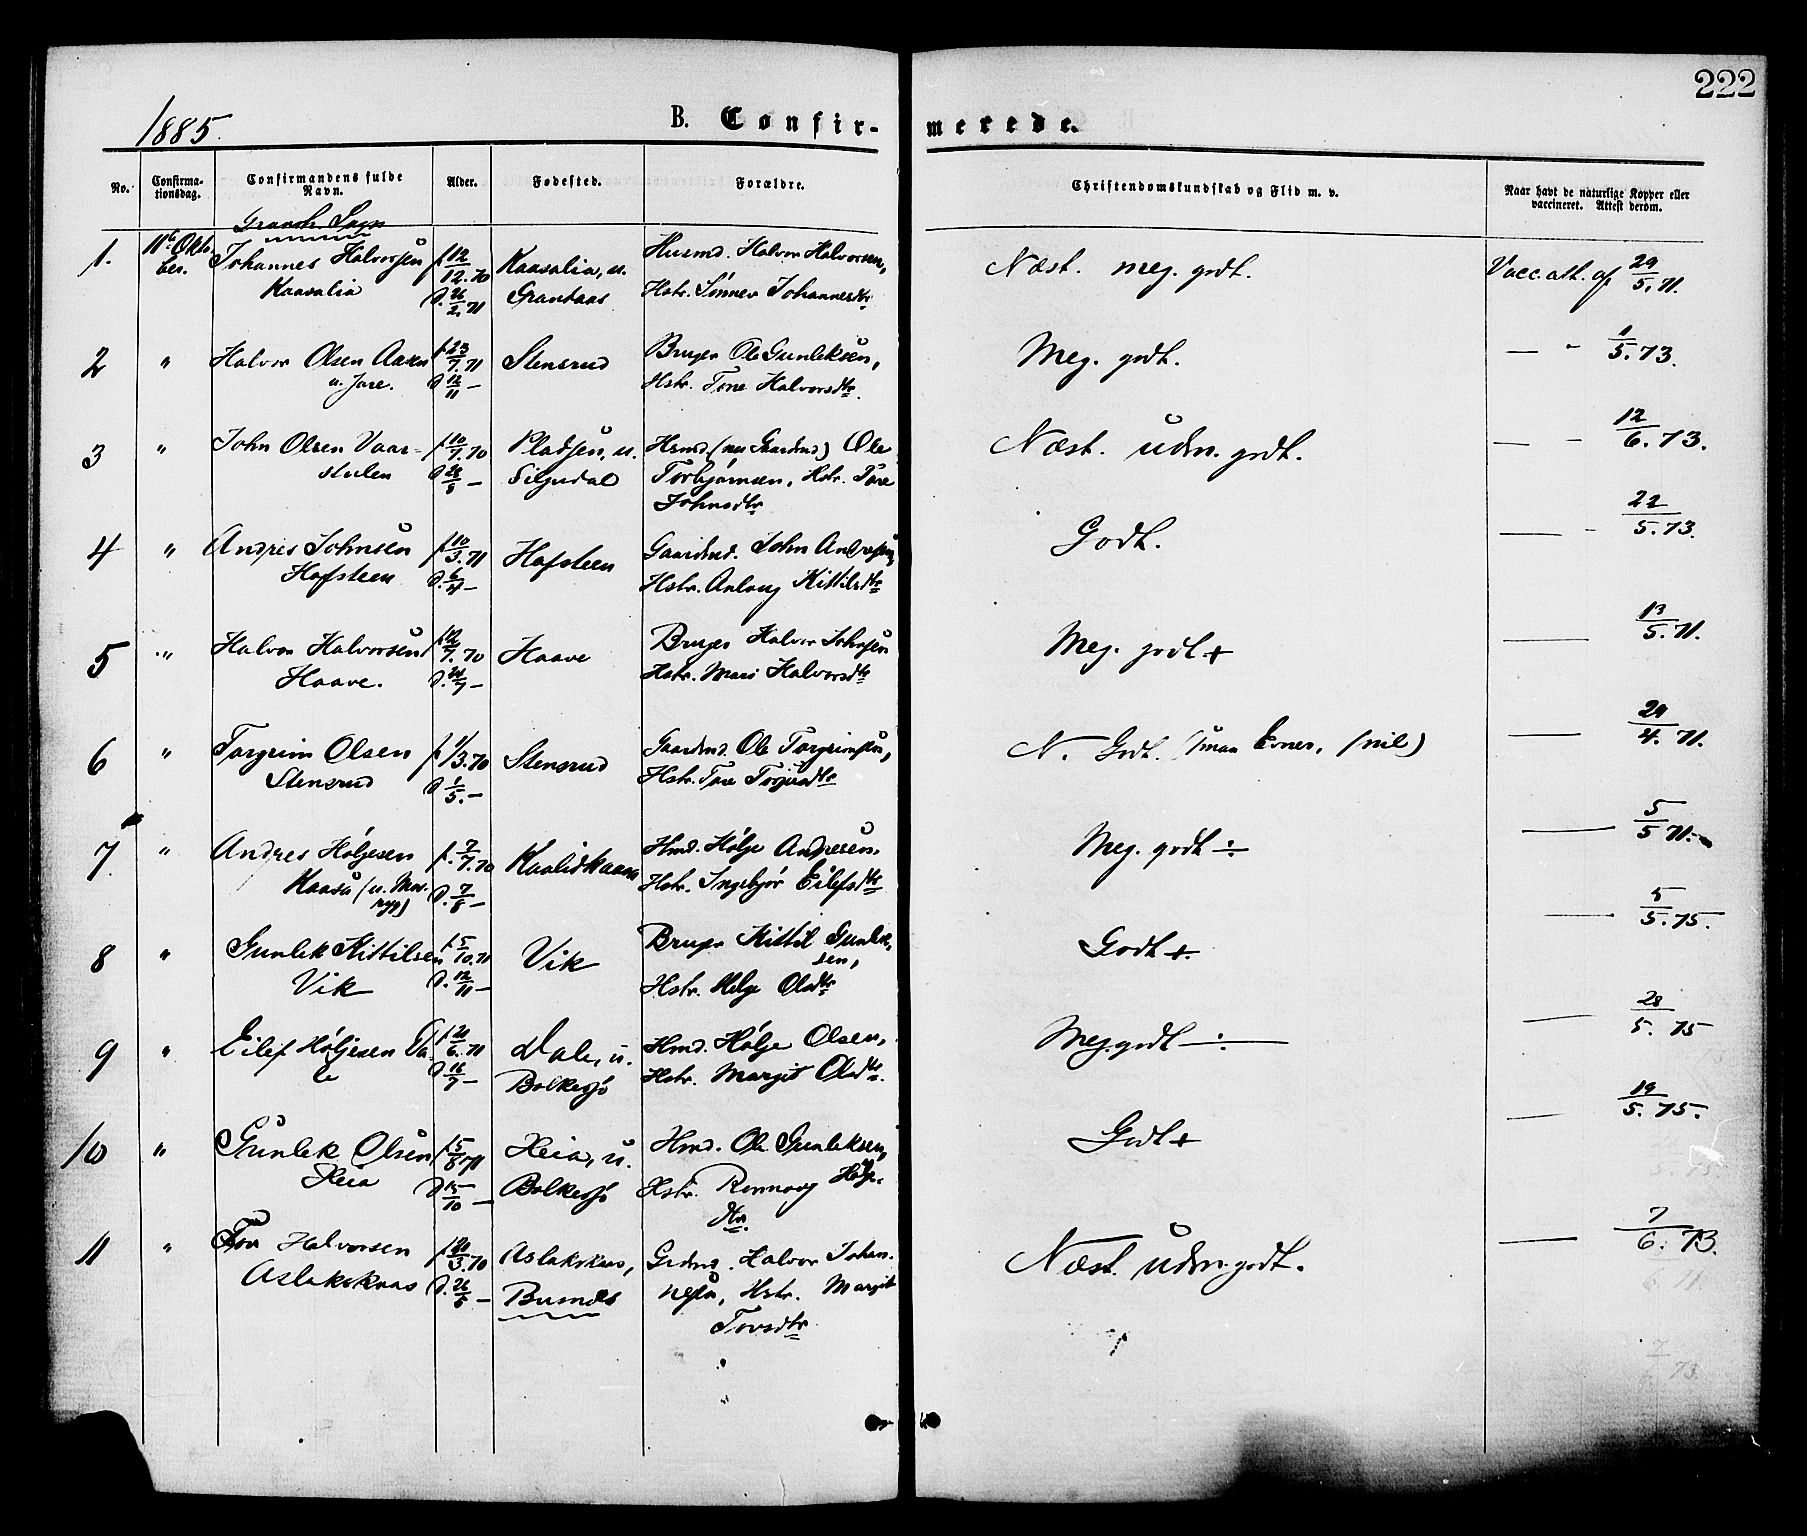 222
1885.
B. Confir-
merede.
No.
Confirma-
tionsdag.
Confirmandens fulde
Navn.
Alder.
Fødested.
Forældre.
Christendomskundskab og Flid m. v.
Naar havt de naturlige Kopper eller
vaccineret. Attest derom.
Gransh. Sogn
1. 11te Okto Johannes Halvorsen f 12/12.70 Kaasalia, u. Husmd. Halvor Halvorsen, Næst. meg. godt. Vacc.att. af 29/5.71.
ber. Kaasalia d. 26/2.71 Grantaas Hstr. Sønnev Johannesdtr
2 " Halvor Olsen Aasen f 23/7.71 Stensrud Bruger Ole Gunleksen, Meg. godt. — " 1/5.73.
u. Jore. d 12/11 — Hstr. Tone Halvorsdtr.
3 " John Olsen Vaar- f 10/7.70 Pladsen, u. Hsmd. (nu Gaardmd) Ole Næst. udm. godt. — - 12/6.73.
stulen d 28/8 — Silgudal Torbjørnsen, Hstr. Tone
Johnsdtr
4 " Andres Johnsen f 10/3.71 Hofsteen Gaardmd. John Andresen, Godt. — - 22/5.73.
Hofsteen d. 6/4 — Hstr. Anlaug Kittilsdtr
5 " Halvor Halvorsen f 12/7.70 Haave Bruger Halvor Johnsen Meg. godt + — 13/5.71.
Haave. d. 24/7 — Hstr. Mari Halvorsdtr
6 " Torgrim Olsen f 1/3.70 Stensrud Gaardmd. Ole Torgrimsen, N. Godt. (smaa Evner, flid) — 29/4.71.
Stensrud d 1/5. — Hstr. Tone
7. " Andres Høljesen f. 7/7.70 Kaalidkaasa Hmd. Hølje Andresen, Meg. godt ÷ — 5/5 71.
Kaasa (u. Mor- d. 7/8 — Hstr. Ingebjør Eilefsdtr
ryg)
8 " Gunlek Kittilsen f 5/10.71 Vik Bruger Kittil Gunlek- Godt +. — 5/5.75.
sen,
Vik d. 12/11 — Hstr. Helge Olsdtr
9 " Eilef Høljesen Da- f 20/6.71 Dale, u. Hmd. Hølje Olsen, Meg. godt ÷ — 28/5.75
le d 16/7 — Bolkesjø Hstr. Margit Olsdtr.
10 " Gunlek Olsen f 5/8 71 Heia, u. Hmd. Ole Gunleksen, Godt + — 19/5.75.
Heia d 15/10 — Bolkesjø Hstr. Rønnaug Hølje-
dtr.
11 " Tov Halvorsen f 20/3.70 Aslakskaas, Grdmd. Halvor Johan- Næst. udm. godt. — 7/6.73.
Aslakskaas d. 26/5 — Bumds nesen, Hstr. Margit
Tovsdtr